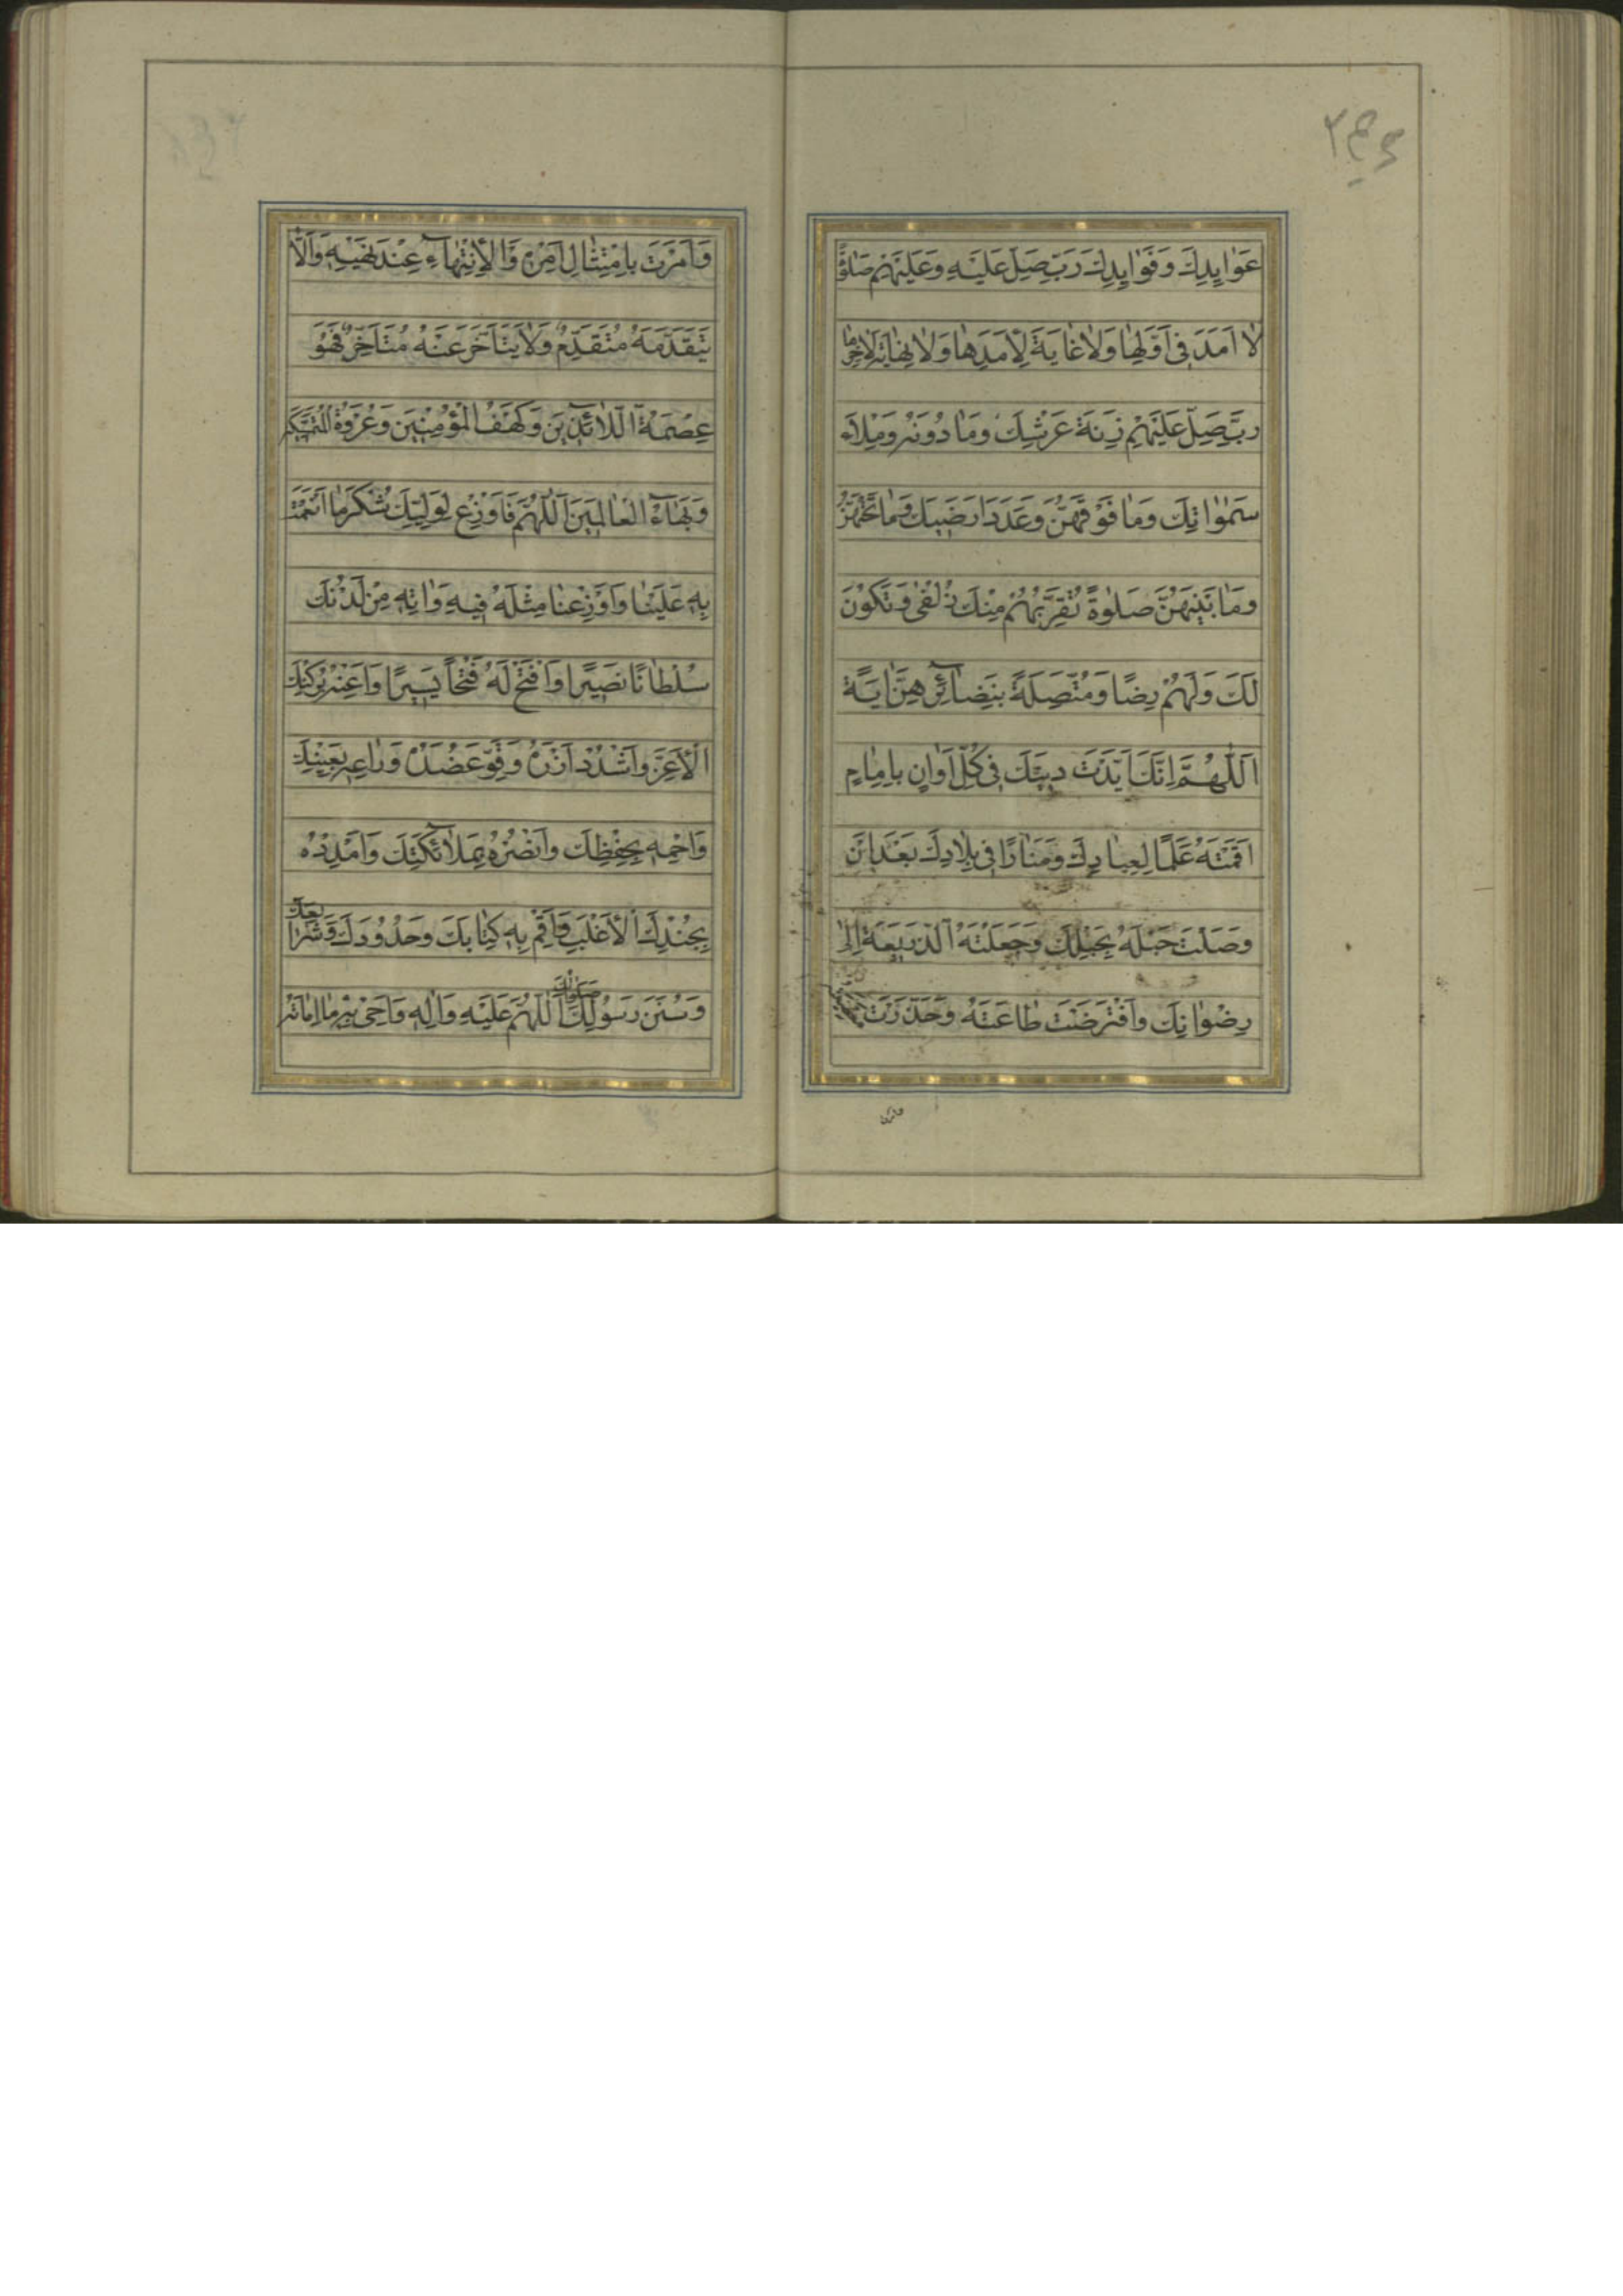 عَوٰايِدِكَ وَفَوٰايِدِكَ رَبِّ صَلِّ عَلَيْهِ وَعَلَيْهِمْ صَلٰوةً
لاٰ اَمَدَ فِي اَوَّلِهٰا وَلاٰ غٰايَةَ لِاَمَدِهٰا وَلاٰ نِهٰايَةَ لِاٰخِرِهٰا
رَبِّ صَلِّ عَلَيْهِمْ زِنَةَ عَرْشِكَ وَمٰا دُونَهُ وَمِلْاَءَ
سَمٰوٰاتِكَ وَمٰا فَوْقَهُنَّ وَعَدَدَ اَرَضيٖكَ وَمٰا تَحْتَهُنَّ
وَمٰا بَيْنَهُنَّ صَلٰوةً تُقَرِّبُهُمْ مِنْكَ زُلْفٰى وَتَكُوْنَ
لَكَ وَلَهُمْ رِضًا وَمُتَّصِلَةً بِنَضٰآئِرِهِنَّ اَيَةً
اَللّٰهُمَّ اِنَّكَ اَيَّدْتَ ديٖنَكَ فِي كُلِّ اَوٰانٍ بِاِمٰامٍ
اَقَمْتَهُ عَلَمًا لِعِبٰادِكَ وَمَنٰارًا فِي بِلٰادِكَ بَعْدَ اَنْ
وَصَلْتَ حَبْلَهُ بِحَبْلِكَ وَجَعَلْتَهُ الذَّريٖعَةَ اِلىٰ
رِضْوٰانِكَ وَافْتَرَضْتَ طٰاعَتَهُ وَحَذَّرْتَ
وَاَمَرْتَ بِامْتِثٰالِ اَمْرِهِ وَالْاِنْتِهٰآءِ عِنْدَ نَهْيِهِ وَاَلّاٰ
يَتَقَدَّمَهُ مُتَقَدِّمٌ وَلاٰ يَتَاَخَّرَ عَنْهُ مُتَاَخِّرٌ فَهُوَ
عِصْمَةُ اللّاٰئِذيٖنَ وَكَهْفُ الْمُؤْمِنيٖنَ وَعُرْوَةُ الْمُتَمَسِّكيٖنَ
وَبَهٰآءُ الْعٰالَميٖنَ اَللّٰهُمَّ فَاَوْزِعْ لِوَلِيِّكَ شُكْرَ مٰا اَنْعَمْتَ
بِهِ عَلَيْنٰا وَاَوْزِعْنٰا مِثْلَهُ فِيهِ وَاٰتِهِ مِنْ لَدُنْكَ
سُلْطٰانًا نَصيٖرًا وَافْتَحْ لَهُ فَتْحًا يَسيٖرًا وَاَعِنْهُ بِرُكْنِكَ
الْاَعَزِّ وَاشْدُدْ اَزْرَهُ وَقَوِّ عَضُدَهُ وَرٰاعِهِ بِعَيْنِكَ
وَاحْمِهِ بِحِفْظِكَ وَانْصُرْهُ بِمَلاٰئِكَتِكَ وَامْدُدْهُ
بِجُنْدِكَ الْاَغْلَبِ وَاَقِمْ بِهِ كِتٰابَكَ وَحُدُودَكَ وَشَرٰايِعَكَ
وَسُنَنَ رَسُولِكَ صَلَوٰاتُكَ اللّٰهُمَّ عَلَيْهِ وَاٰلِهِ وَاَحْيِ بِهِ مٰا اَمٰاتَهُ